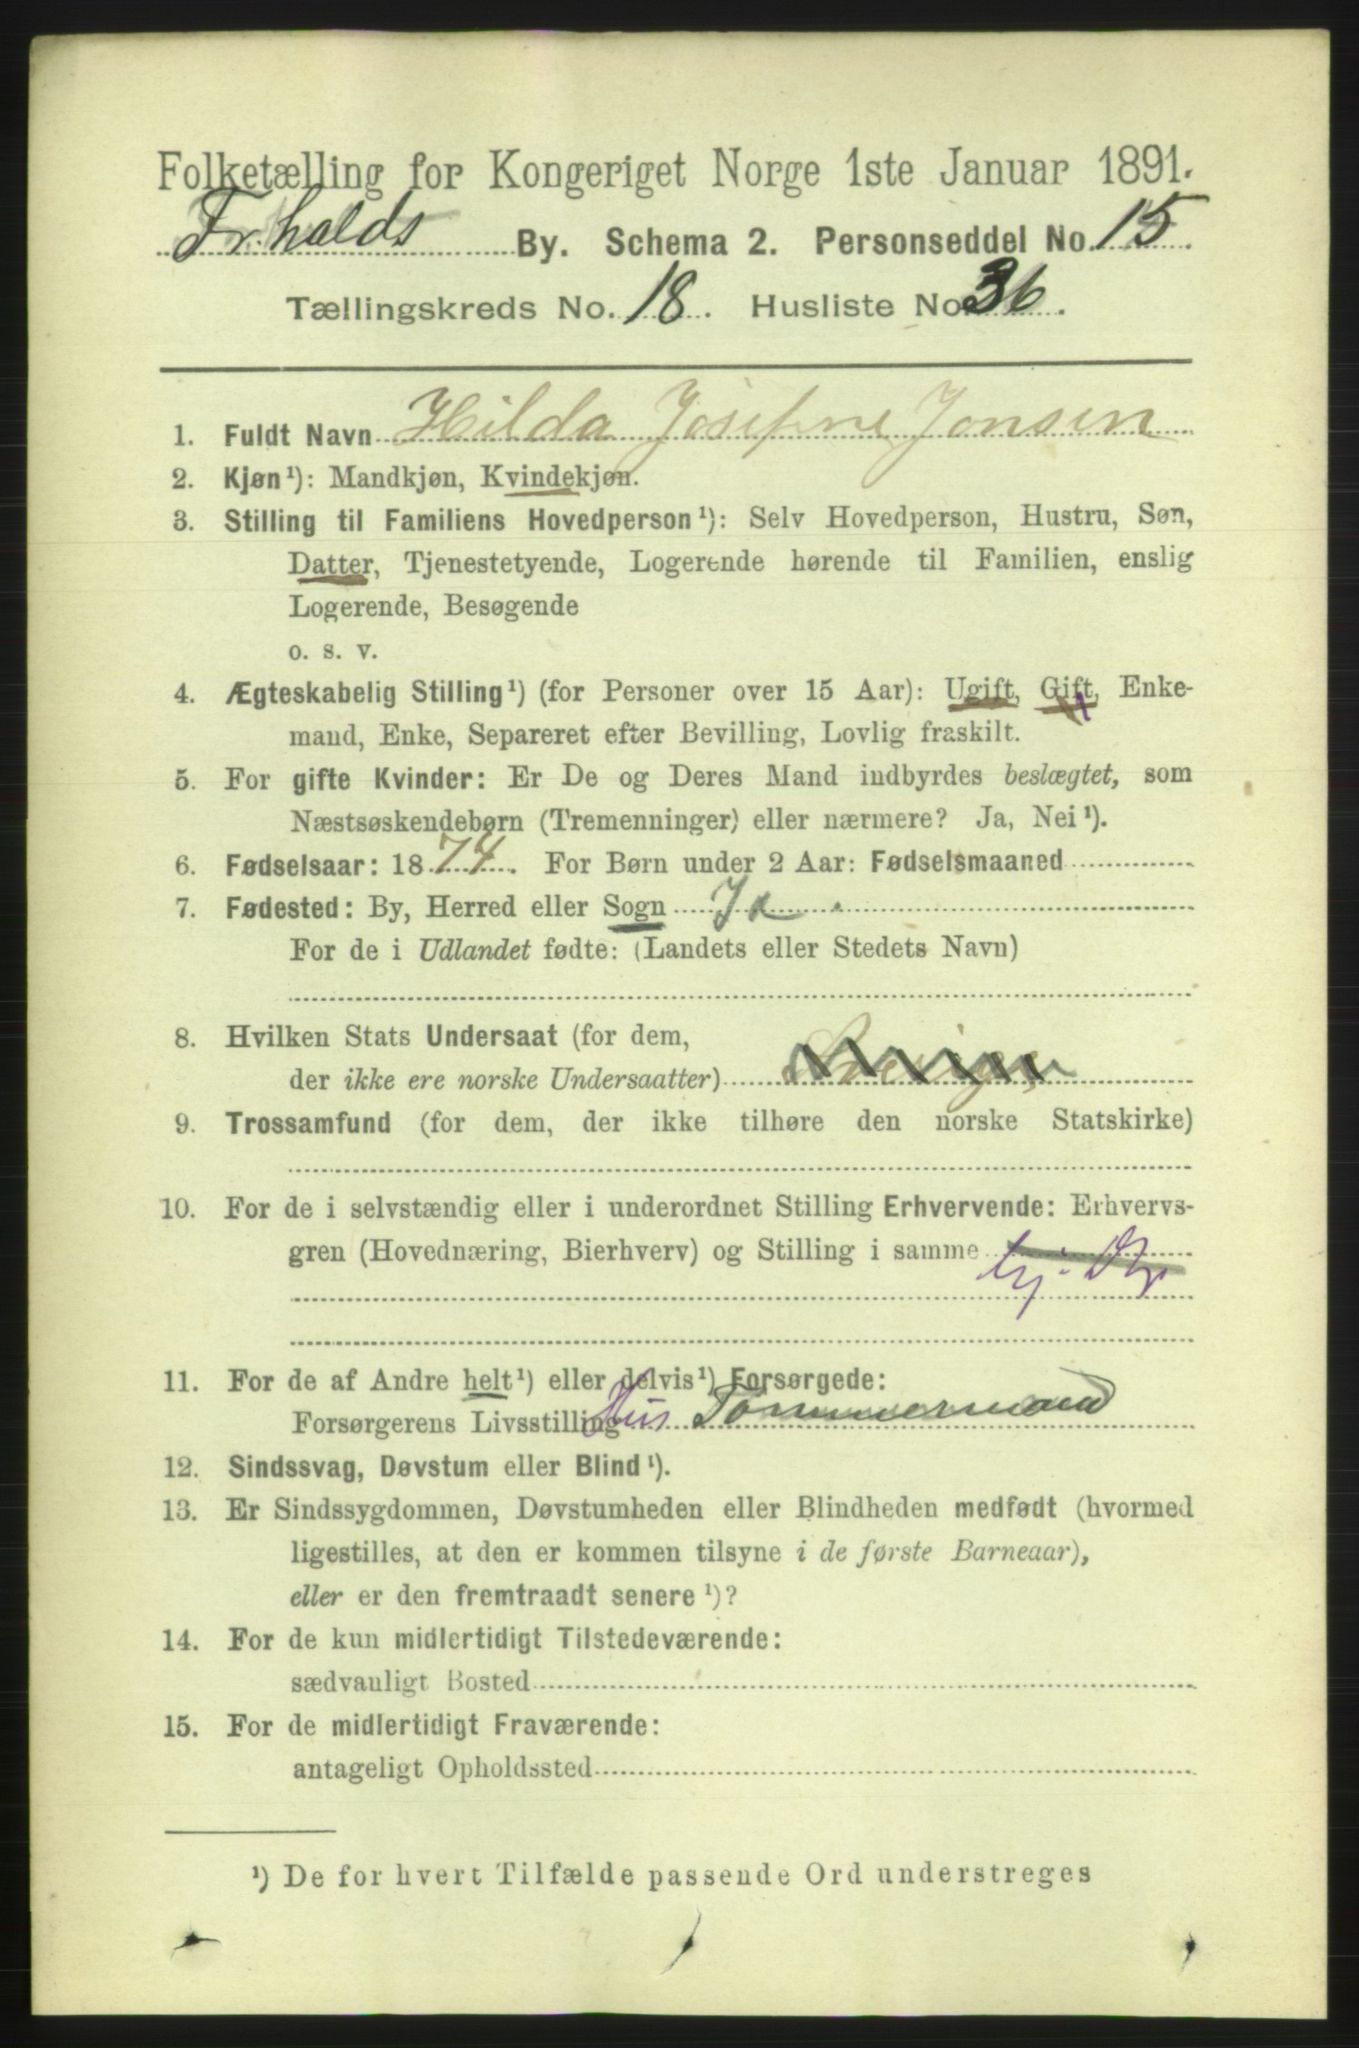 Folketælling for Kongeriget Norge 1ste Januar 1891.
Fr.halds By. Schema 2. Personseddel No. 15.
Tællingskreds No. 18. Husliste No. 36.
1. Fuldt Navn Hilda Josefine Jonsen
2. Kjøn¹): Mandkjøn, Kvindekjøn.
3. Stilling til Familiens Hovedperson¹): Selv Hovedperson, Hustru, Søn,
Datter, Tjenestetyende, Logerende hørende til Familien, enslig
Logerende, Besøgende
o. s. v.
4. Ægteskabelig Stilling¹) (for Personer over 15 Aar): Ugift, Gift, Enke-
mand, Enke, Separeret efter Bevilling, Lovlig fraskilt.
5. For gifte Kvinder: Er De og Deres Mand indbyrdes beslægtet, som
Næstsøskendebørn (Tremenninger) eller nærmere? Ja, Nei¹).
6. Fødselsaar: 1874. For Børn under 2 Aar: Fødselsmaaned
7. Fødested: By, Herred eller Sogn
For de i Udlandet fødte: (Landets eller Stedets Navn)
8. Hvilken Stats Undersaat (for dem,
der ikke ere norske Undersaatter) Sverige
9. Trossamfund (for dem, der ikke tilhøre den norske Statskirke)
10. For de i selvstændig eller i underordnet Stilling Erhvervende: Erhvervs-
gren (Hovednæring, Bierhverv) og Stilling i samme
11. For de af Andre helt¹) eller delvis¹) Forsørgede:
Forsørgerens Livsstilling Hus Tømmermand
12. Sindssvag, Døvstum eller Blind¹).
13. Er Sindssygdommen, Døvstumheden eller Blindheden medfødt (hvormed
ligestilles, at den er kommen tilsyne i de første Barneaar),
eller er den fremtraadt senere¹)?
14. For de kun midlertidigt Tilstedeværende:
sædvanligt Bosted
15. For de midlertidigt Fraværende:
antageligt Opholdssted
¹) De for hvert Tilfælde passende Ord understreges